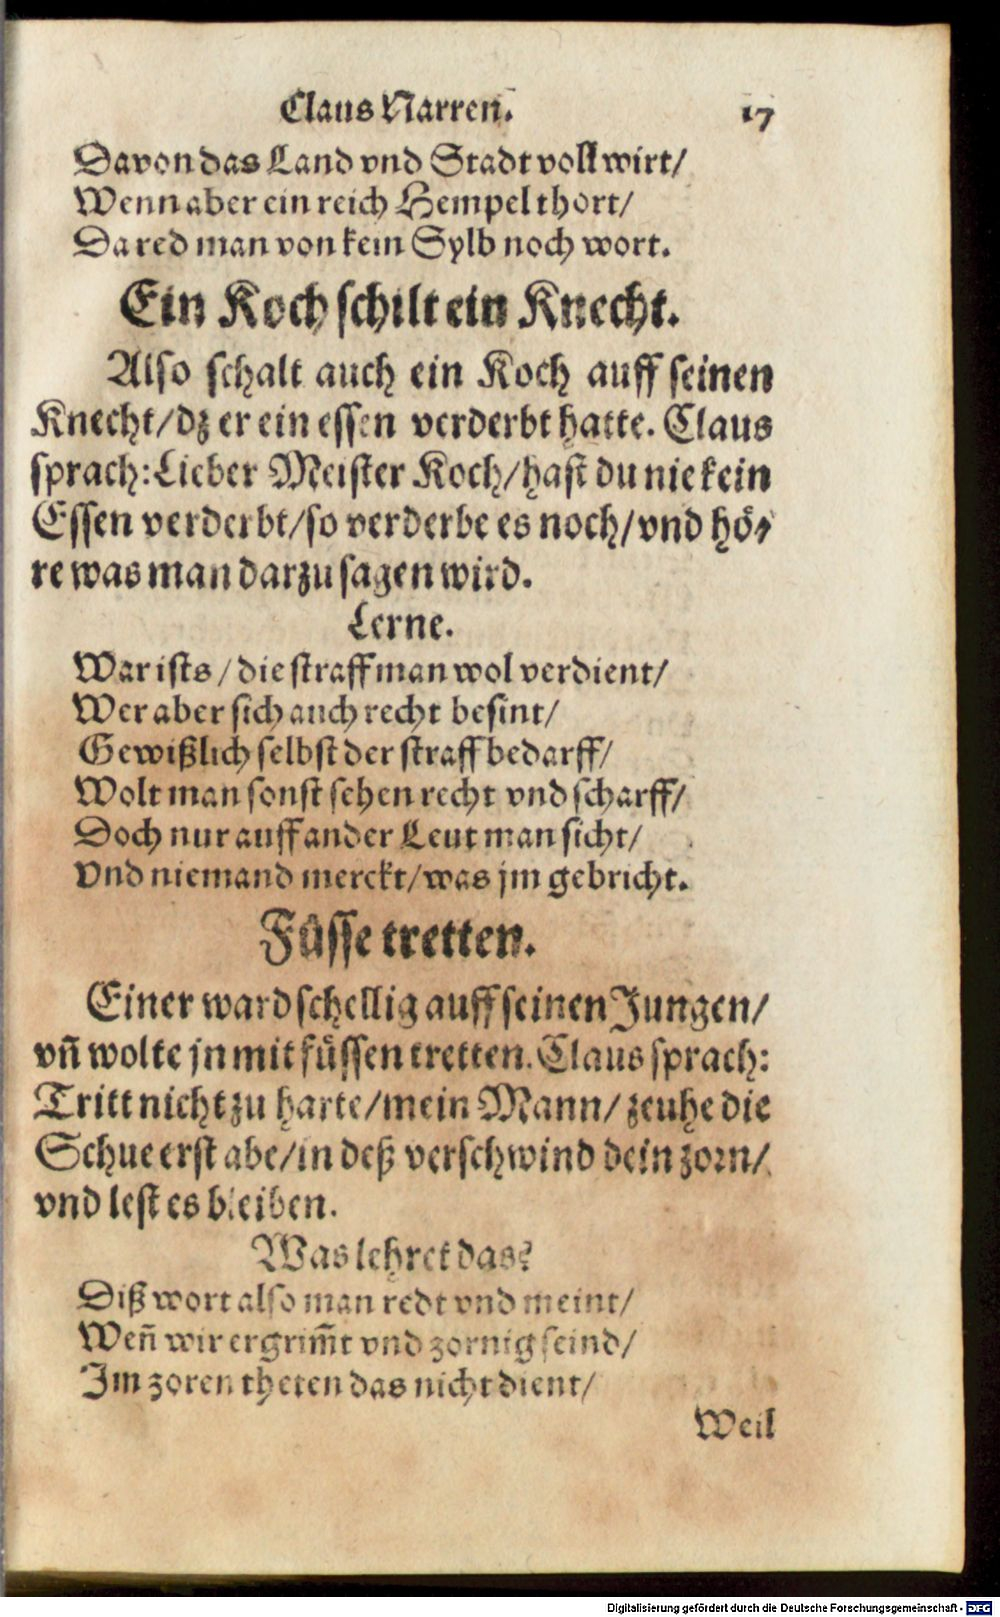 Claus Narren. 17
Davon das Land vnd Stadt voll wirt/
Wenn aber ein reich Hempel thort/
Da red man von kein Sylb noch wort.
Ein Koch schilt ein Knecht.
Also schalt auch ein Koch auff seinen
Knecht/dz er ein essen verderbt hatte. Claus
sprach: Lieber Meister Koch/hast du nie kein
Essen verderbt/so verderbe es noch/vnd hö-
re was man darzu sagen wird.
Lerne.
War ists/die straff man wol verdient/
Wer aber sich auch recht besint/
Gewißlich selbst der straff bedarff/
Wolt man sonst sehen recht vnd scharff/
Doch nur auff ander Leut man sicht/
Vnd niemand merckt/was jm gebricht.
Füsse tretten.
Einer ward schellig auff seinen Jungen/
vñ wolte jn mit füssen tretten. Claus sprach:
Tritt nicht zu harte/mein Mann/zeuhe die
Schue erst abe/in deß verschwind dein zorn/
vnd lest es bleiben.
Was lehret das?
Diß wort also man redt vnd meint/
Weñ wir ergrim̃t vnd zornig seind/
Im zoren theten das nicht dient/
Weil
Digitalisierung gefördert durch die Deutsche Forschungsgemeinschaft - DFG